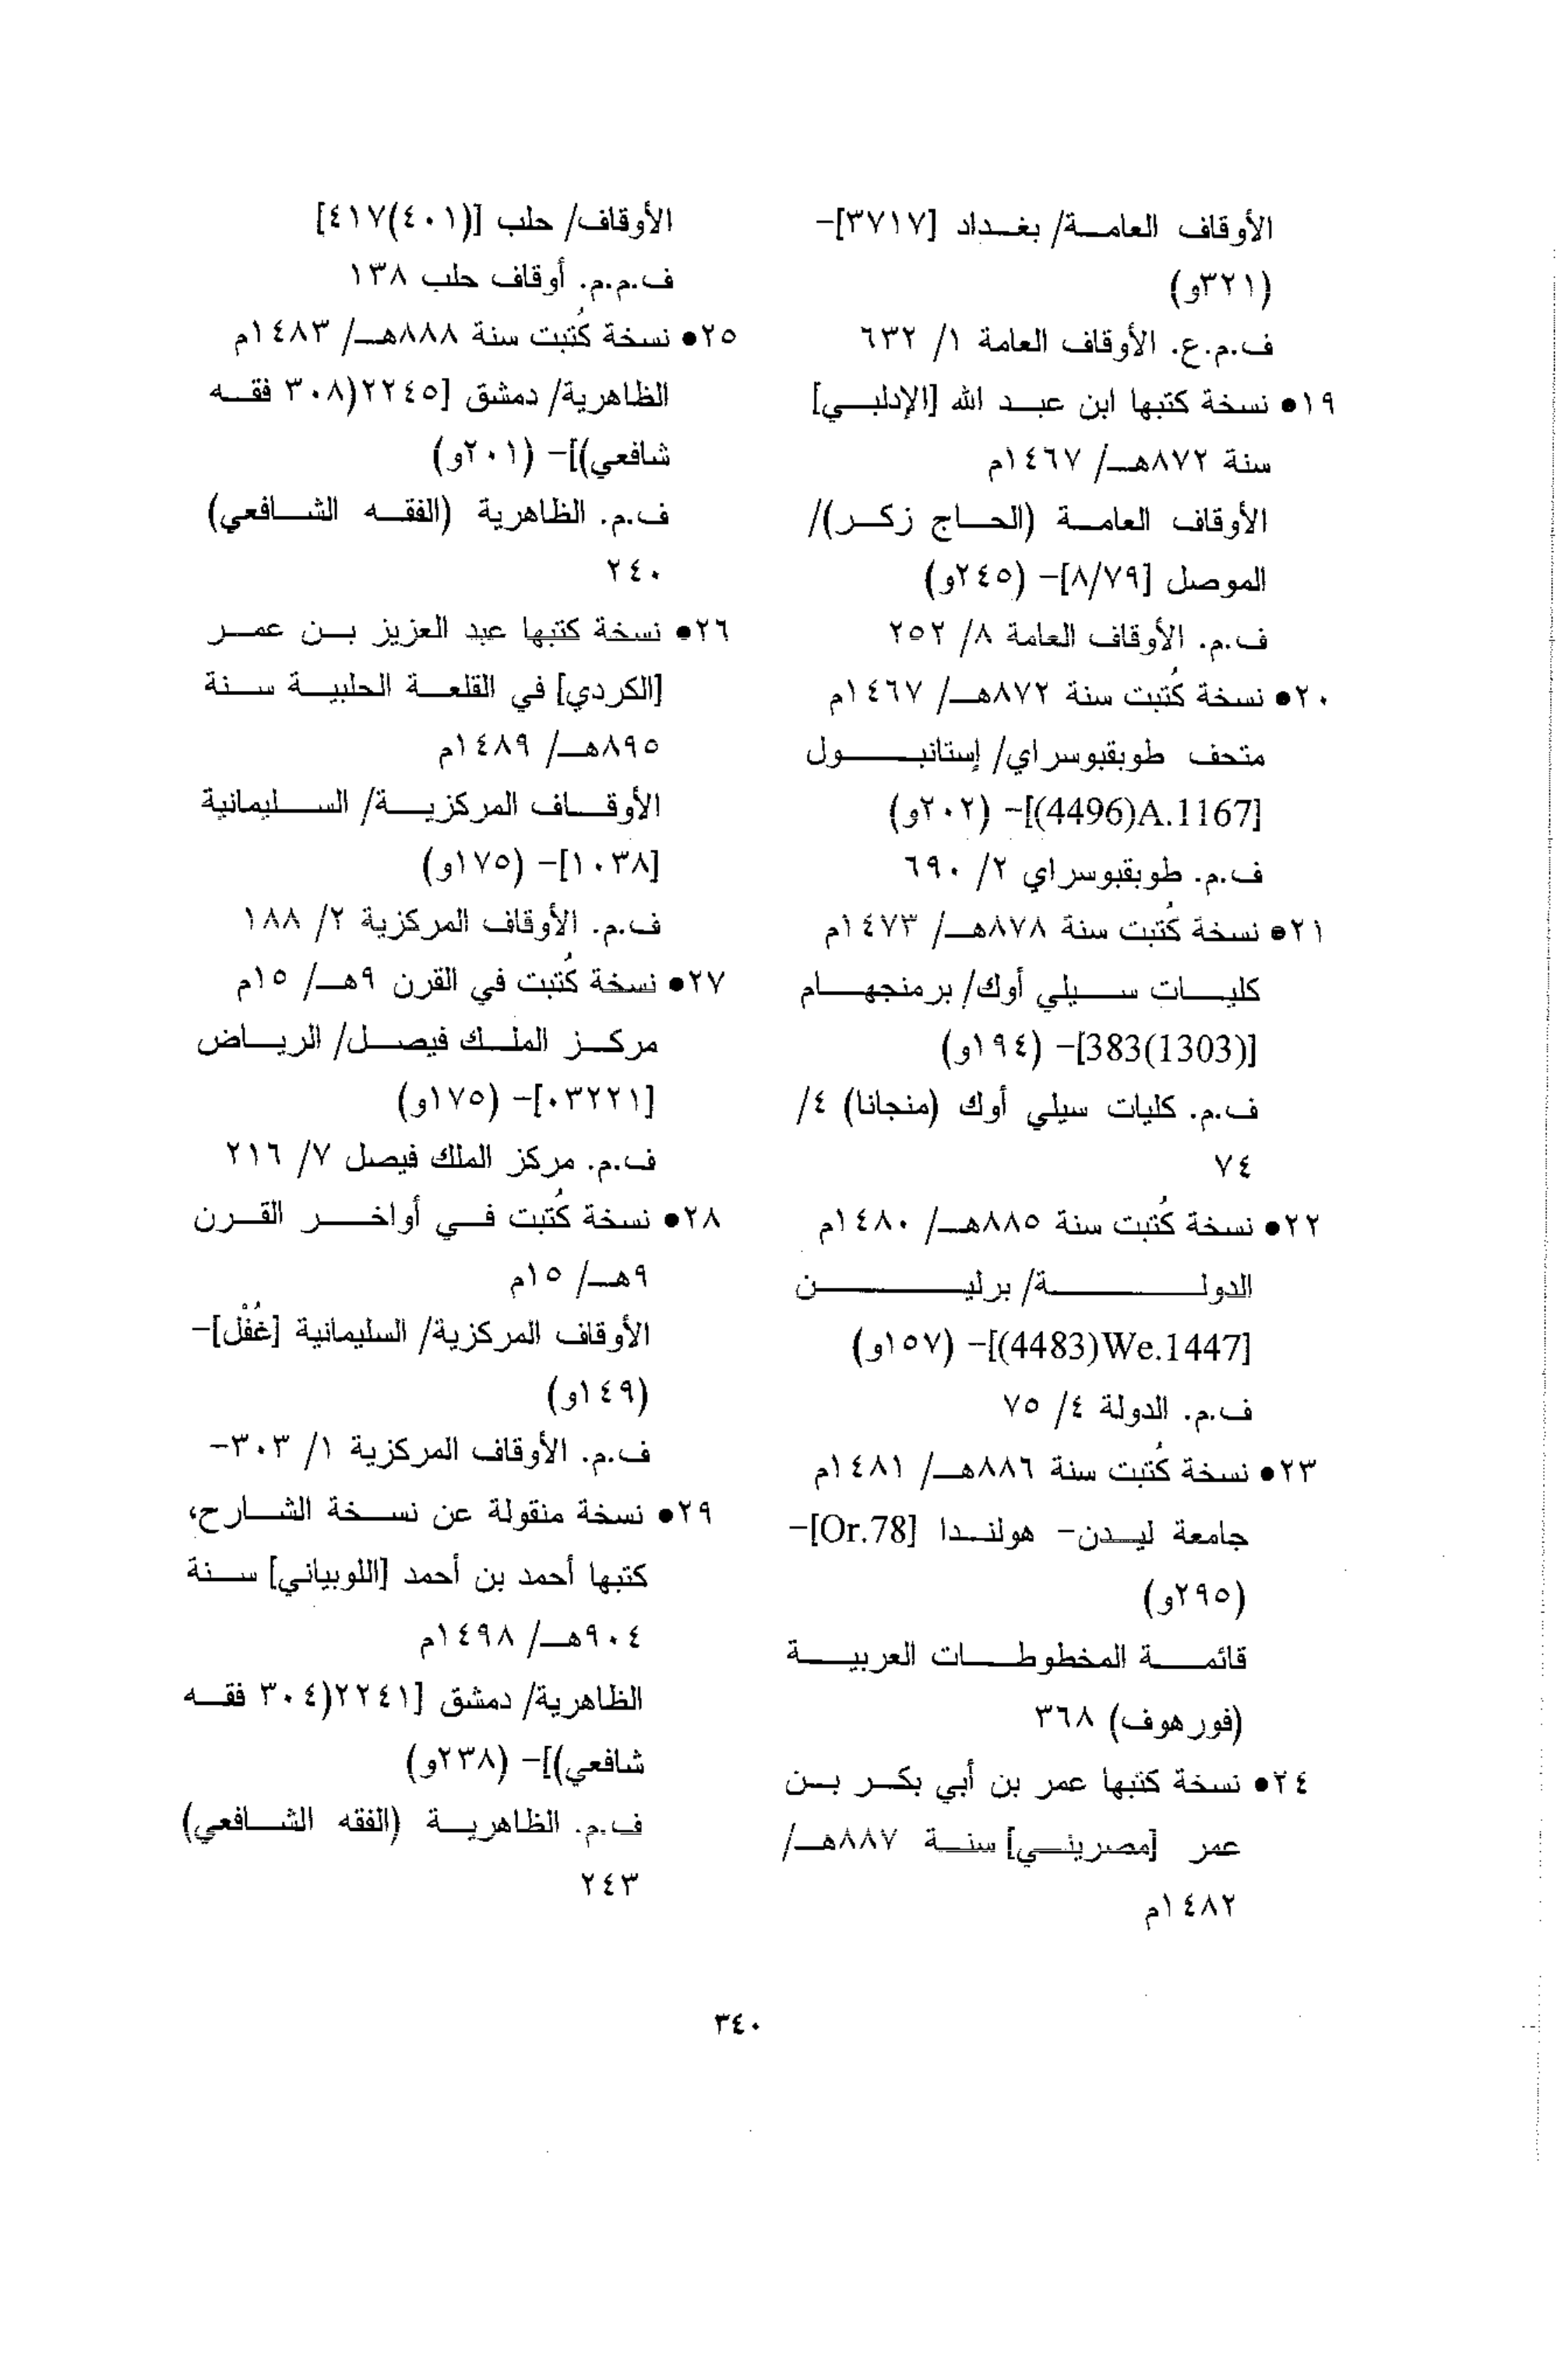 الأوقاف العامة/ بغداد [٣٧١٧]-
(٣٢١و)
ف.م.ع. الأوقاف العامة ١/ ٦٣٢
١٩• نسخة كتبها ابن عبد الله [الإدلبي]
سنة ٨٧٢هـ/ ١٤٦٧م
الأوقاف العامة (الحاج زكر)/
الموصل [٨/٧٩]- (٢٤٥و)
ف.م. الأوقاف العامة ٨/ ٢٥٢
٢٠• نسخة كُتبت سنة ٨٧٢هـ/ ١٤٦٧م
متحف طوبقبوسراي/ إستانبول
[4496)A.1167)]- (٢٠٢و)
ف.م. طوبقبوسراي ٢/ ٦٩٠
٢١• نسخة كُتبت سنة ٨٧٨هـ/ ١٤٧٣م
كليات سيلي أوك/ برمنجهام
[383(1303)]- (١٩٤و)
ف.م. كليات سيلي أوك (منجانا) ٤/
٧٤
٢٢• نسخة كُتبت سنة ٨٨٥هـ/ ١٤٨٠م
الدولة/ برلين
[4483)We.1447)]- (١٥٧و)
ف.م. الدولة ٤/ ٧٥
٢٣• نسخة كُتبت سنة ٨٨٦هـ/ ١٤٨١م
جامعة ليدن- هولندا [Or.78]-
(٢٩٥و)
قائمة المخطوطات العربية
(فورهوف) ٣٦٨
٢٤• نسخة كتبها عمر بن أبي بكر بن
عمر [مصريني] سنة ٨٨٧هـ/
١٤٨٢م
الأوقاف/ حلب [(٤٠١)٤١٧]
ف.م.م. أوقاف حلب ١٣٨
٢٥• نسخة كُتبت سنة ٨٨٨هـ/ ١٤٨٣م
الظاهرية/ دمشق [٢٢٤٥(٣٠٨ فقه
شافعي)]- (٢٠١و)
ف.م. الظاهرية (الفقه الشافعي)
٢٤٠
٢٦• نسخة كتبها عبد العزيز بن عمر
[الكردي] في القلعة الحلبية سنة
٨٩٥هـ/ ١٤٨٩م
الأوقاف المركزية/ السليمانية
[١٠٣٨]- (١٧٥و)
ف.م. الأوقاف المركزية ٢/ ١٨٨
٢٧• نسخة كُتبت في القرن ٩هـ/ ١٥م
مركز الملك فيصل/ الرياض
[٠٣٢٢١]- (١٧٥و)
ف.م. مركز الملك فيصل ٧/ ٢١٦
٢٨• نسخة كُتبت في أواخر القرن
٩هـ/ ١٥م
الأوقاف المركزية/ السليمانية [غُفْل]-
(١٤٩و)
ف.م. الأوقاف المركزية ١/ ٣٠٣-
٢٩• نسخة منقولة عن نسخة الشارح،
كتبها أحمد بن أحمد [اللوبياني] سنة
٩٠٤هـ/ ١٤٩٨م
الظاهرية/ دمشق [٢٢٤١(٣٠٤ فقه
شافعي)]- (٢٣٨و)
ف.م. الظاهرية (الفقه الشافعي)
٢٤٣
٣٤٠